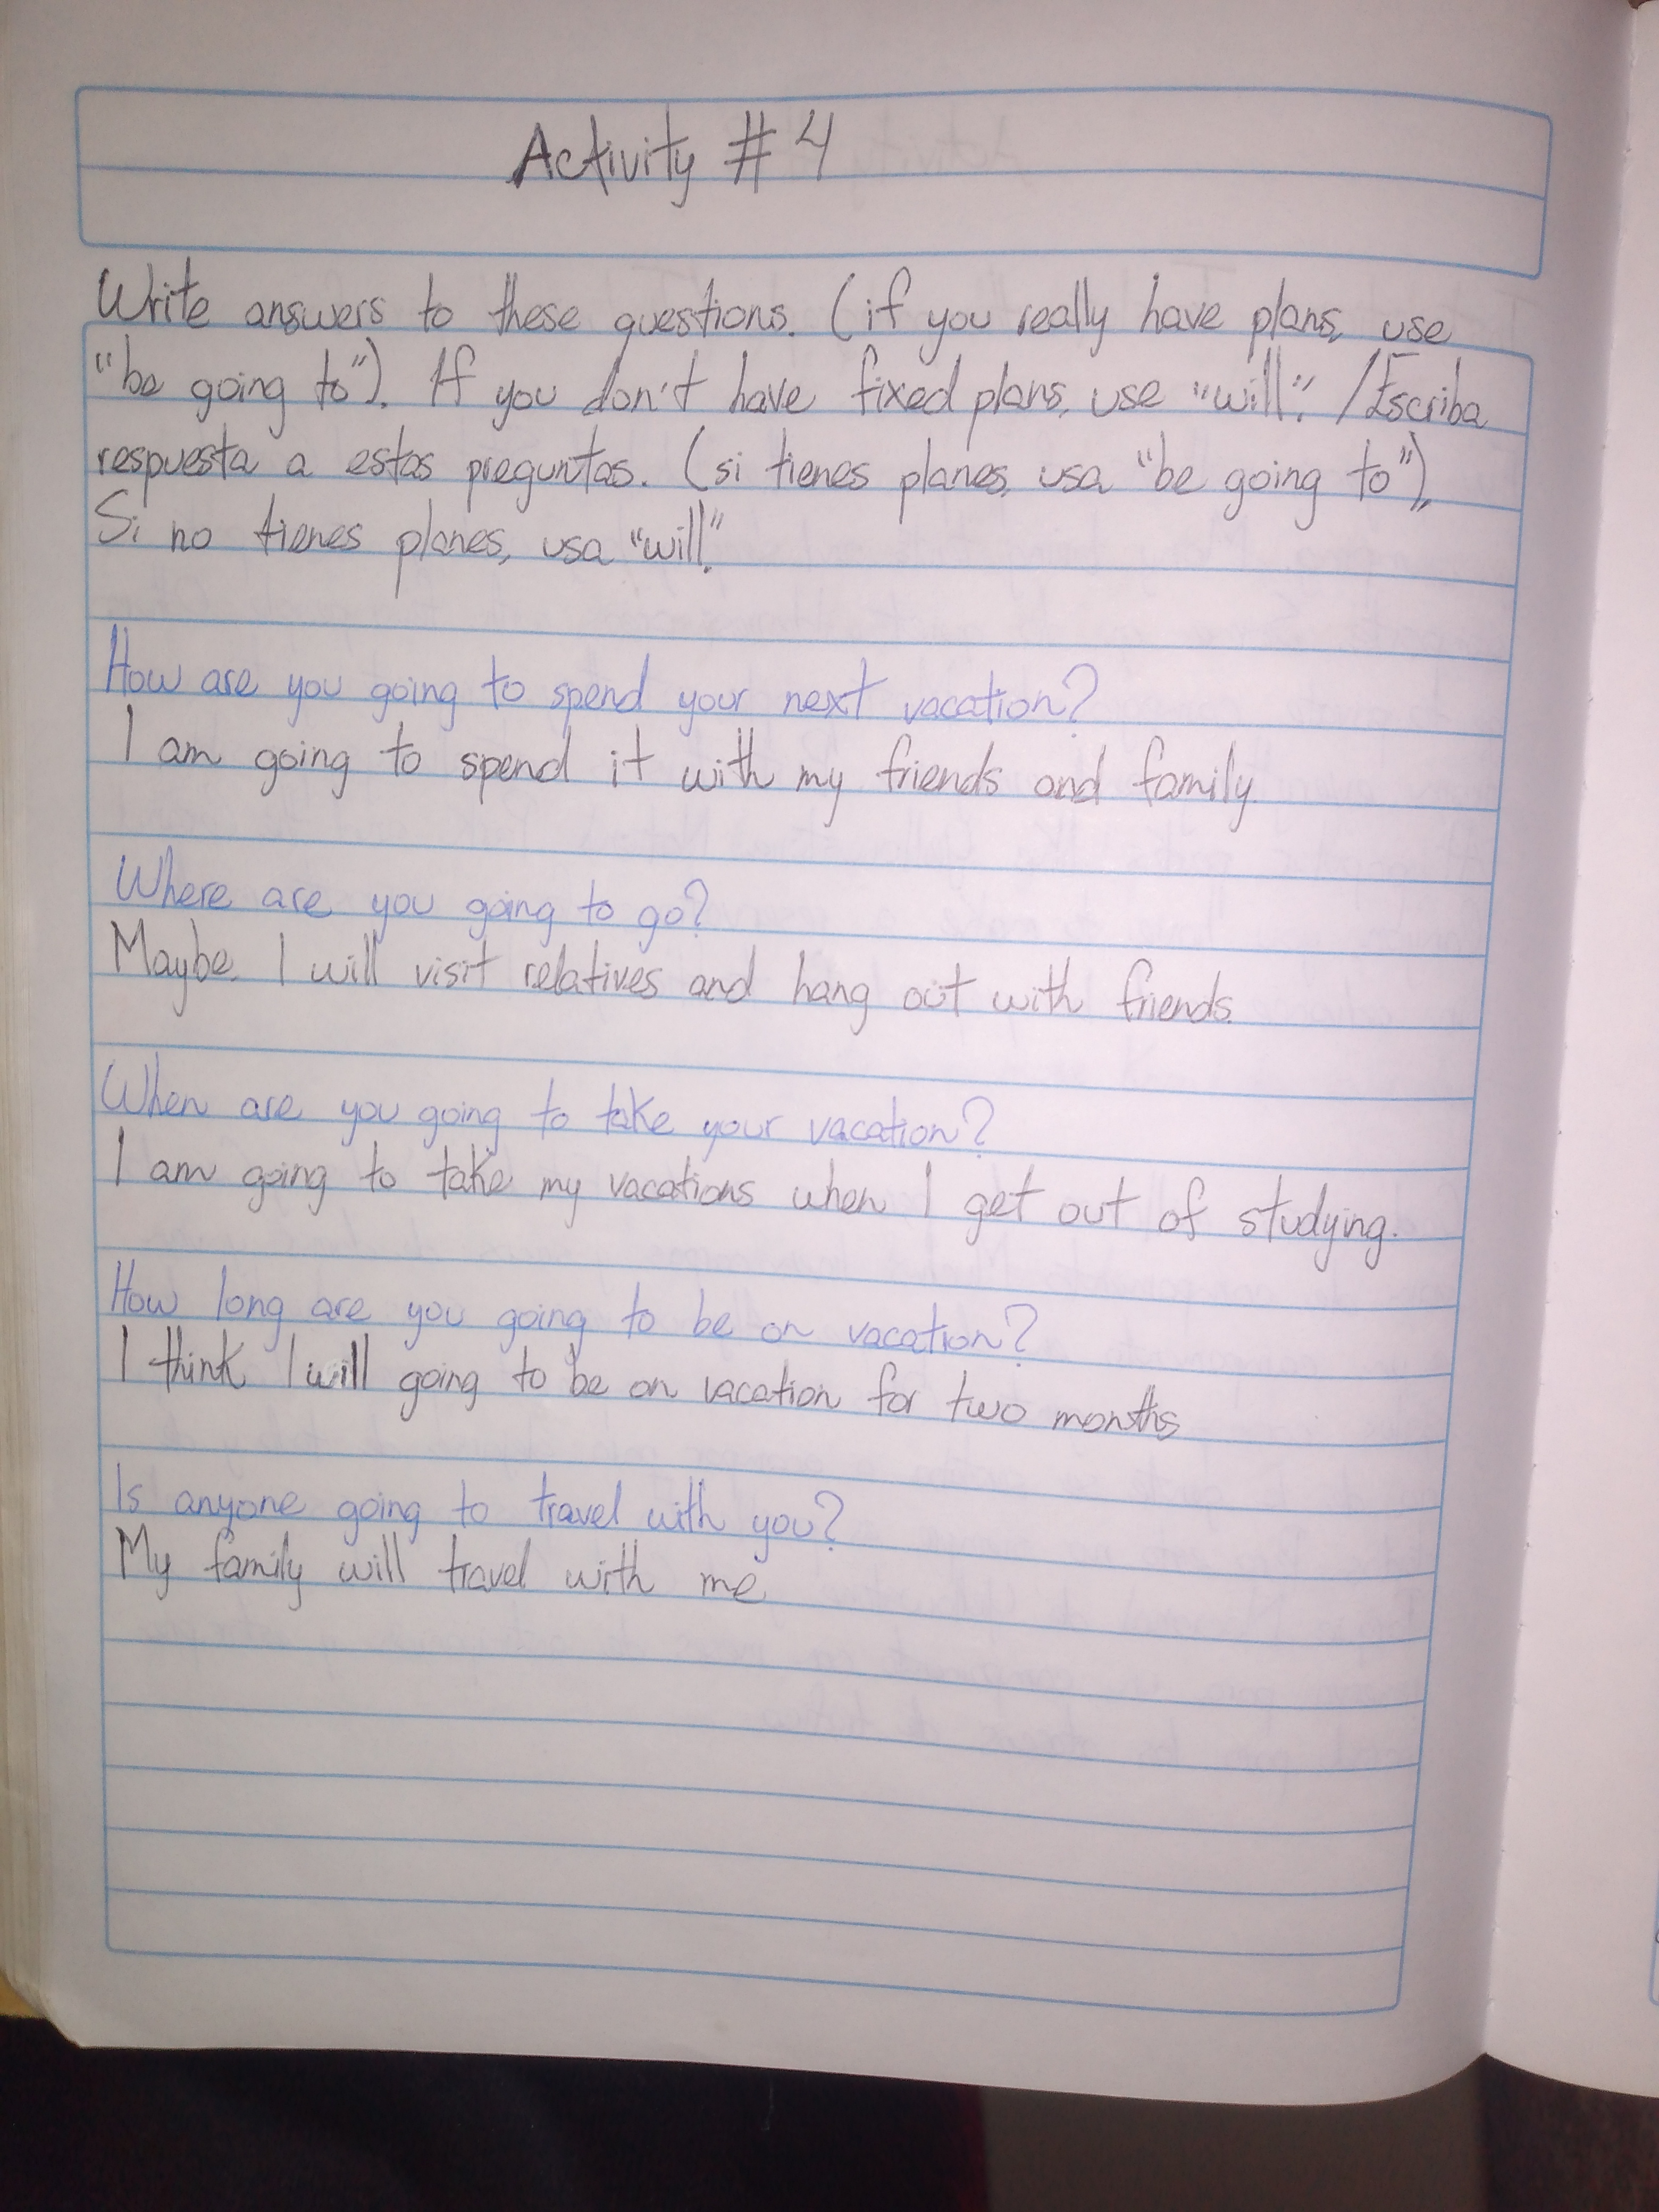 Activity # 4
Write answers to these questions. (if you really have plans, use
"be going to"). If you don't have fixed plans, use "will". /Escriba
respuesta a estas preguntas. (si tienes planes, usa "be going to").
Si no tienes planes, usa "will".
How are you going to spend your next vacation?
I am going to spend it with my friends and family.
Where are you going to go?
Maybe. I will visit relatives and hang out with friends.
When are you going to take your vacation?
I am going to take my vacations when I get out of studying.
How long are you going to be on vacation?
I think I will going to be on vacation for two months
Is anyone going to travel with you?
My family will travel with me.